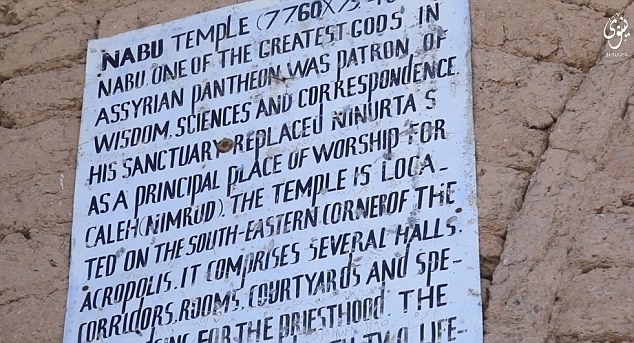 NABU TEMPLE (7760X75
NABU, ONE OF THE GREATEST GODS IN
ASSYRIAN PANTHEON, WAS PATRON OF
WISDOM, SCIENCES AND CORRESPONDENCE.
HIS SANCTUARY REPLACED NINURTA S
AS A PRINCIPAL PLACE OF WORSHIP FOR
CALEH (NIMRUD). THE TEMPLE IS LOCA-
TED ON THE SOUTH-EASTERN CORNER OF THE
ACROPOLIS. IT COMPRISES SEVERAL HALLS.
CORRIDORS, ROOMS, COURTYARDS AND SPE-
FOR THE PRIESTHOOD. THE
TWO LIFE-
نينوى